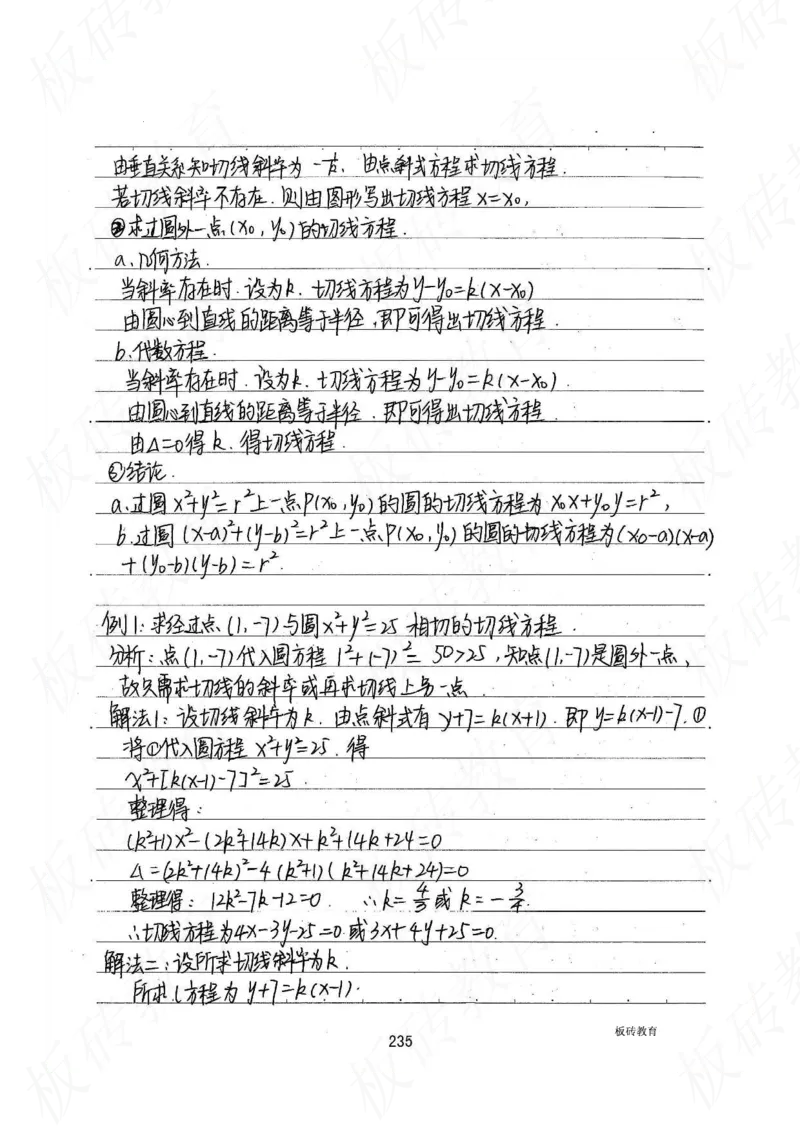 由垂直关系知切线斜率为 -1/k. 由点斜式方程求切线方程.
若切线斜率不存在. 则由图形写出切线方程 x=x₀,
②求过圆外一点(x₀, y₀)的切线方程.
a. 几何方法.
当斜率存在时. 设为k. 切线方程为y-y₀=k(x-x₀)
由圆心到直线的距离等于半径, 即可得出切线方程.
b. 代数方程.
当斜率存在时. 设为k. 切线方程为y-y₀=k(x-x₀).
由圆心到直线的距离等于半径. 即可得出切线方程
由Δ=0得k. 得切线方程.
③结论.
a. 过圆 x²+y²=r²上一点P(x₀, y₀)的圆的切线方程为 x₀x+y₀y=r²,
b. 过圆 (x-a)²+(y-b)²=r²上一点P(x₀, y₀)的圆的切线方程为(x₀-a)(x-a)
+(y₀-b)(y-b)=r².
例1: 求经过点(1,-7)与圆x²+y²=25 相切的切线方程.
分析: 点(1,-7)代入圆方程 1²+(-7)²= 50>25, 知点(1,-7)是圆外一点,
故只需求切线的斜率或再求切线上另一点.
解法1: 设切线斜率为k. 由点斜式有 y+7=k(x+1). 即y=k(x-1)-7.①
将①代入圆方程 x²+y²=25. 得
x²+[k(x-1)-7]²=25.
整理得:
(k²+1)x²-(2k²+14k)x+k²+14k+24=0
Δ=(2k²+14k)²-4(k²+1)(k²+14k+24)=0
整理得: 12k²-7k-12=0. ∴k=4/3或k=-3/4.
∴切线方程为4x-3y-25=0.或3x+4y+25=0.
解法二: 设所求切线斜率为k.
所求l方程为 y+7=k(x-1).
板砖教育
235